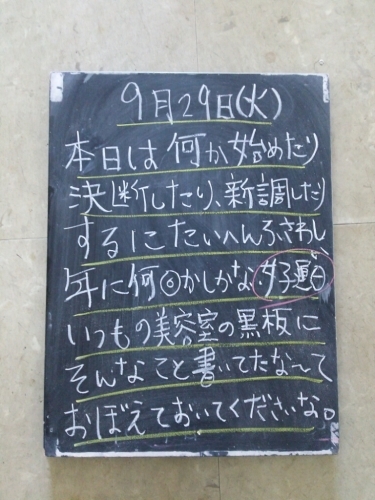 9月29日(火)
本日は何か始めたり
決断したり、新調したり
するにたいへんふさわしい
年に何回かしかない好運日
いつもの美容室の黒板に
そんなこと書いてたな〜って
おぼえておいてくださいな。